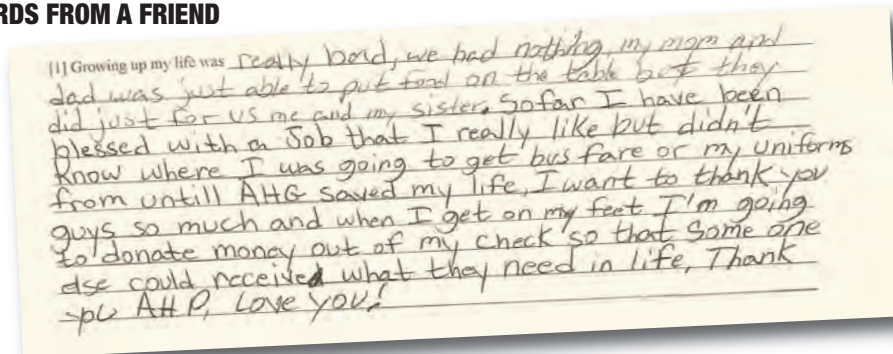 RDS FROM A FRIEND
[1] Growing up my life was really bard, we had nothing, my mom and
dad was just able to put food on the table but they
did just for us me and my sister. Sofar I have been
blessed with a Job that I really like but didn't
know where I was going to get bus fare or my uniforms
from untill AHG saved my life, I want to thank you
guys so much and when I get on my feet I'm going
to donate money out of my check so that Some one
else could received what they need in life, Thank
AHP, Love you!